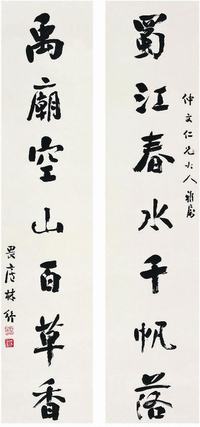 仲文仁兄大人雅屬
蜀江春水千帆落
禹廟空山百草香
畏廬林紓